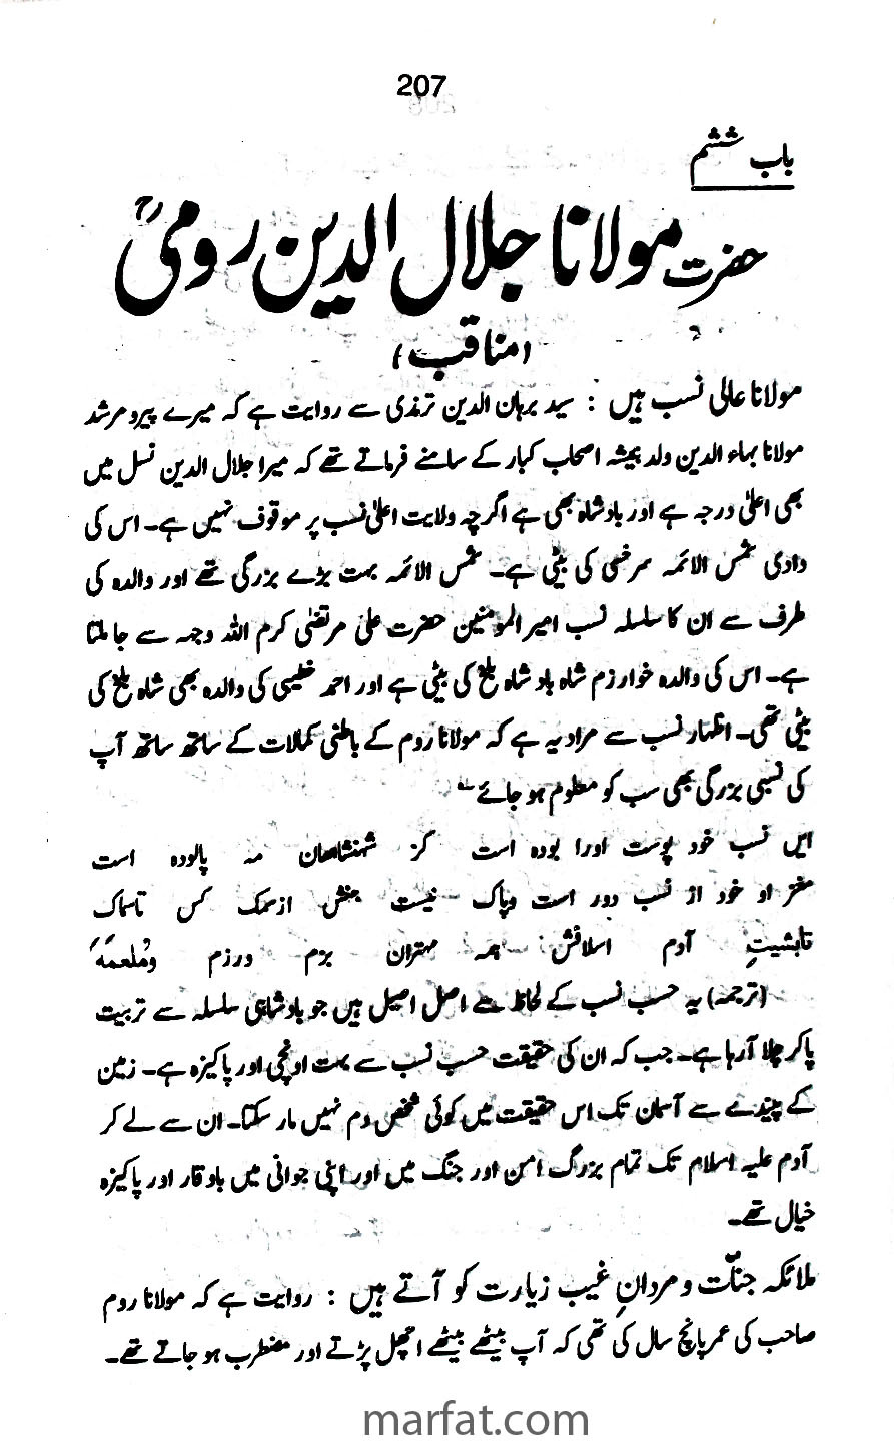 207
باب ششم
حضرت مولانا جلال الدین رومیؒ
(مناقب)
مولانا عالی نسب ہیں : سید برہان الدین ترمذی سے روایت ہے کہ میرے پیر و مرشد
مولانا بہاء الدین ولد ہمیشہ اصحاب کبار کے سامنے فرماتے تھے کہ میرا جلال الدین نسل میں
بھی اعلیٰ درجہ ہے اور بادشاہ بھی ہے اگرچہ ولایت اعلیٰ نسب پر موقوف نہیں ہے۔ اس کی
دادی شمس الائمہ سرخسی کی بیٹی ہے۔ شمس الائمہ بہت بڑے بزرگی تھے اور والدہ کی
طرف سے ان کا سلسلہ نسب امیر المومنین حضرت علی مرتضیٰ کرم اللہ وجہہ سے جا ملتا
ہے۔ اس کی والدہ خوارزم شاہ بادشاہ بلخ کی بیٹی ہے اور احمد خطیبی کی والدہ بھی شاہ بلخ کی
بیٹی تھی۔ اظہار نسب سے مراد یہ ہے کہ مولانا روم کے باطنی کمالات کے ساتھ ساتھ آپ
کی نسبی بزرگی بھی سب کو معلوم ہو جائے
ایں نسب خود پوست اورا بودہ است کز شہنشاھان مہ پالودہ است
مغز او خود از نسب دور است وپاک نیست جنش ازسمک کس تاسماک
تابشیتِ آدم اسلافش ہمہ مہتران بزم ورزم
(ترجمہ) یہ حسب نسب کے لحاظ سے اصل اصیل ہیں جو بادشاہی سلسلہ سے تربیت
پا کر چلا آ رہا ہے۔ جب کہ ان کی حقیقت حسب نسب سے بہت اونچی اور پاکیزہ ہے۔ زمین
کے پیندے سے آسمان تک اس حقیقت میں کوئی شخص دم نہیں مار سکتا۔ ان سے لے کر
آدم علیہ اسلام تک تمام بزرگ امن اور جنگ میں اور اپنی جوانی میں باوقار اور پاکیزہ
خیال تھے۔
ملائکہ جنات و مردانِ غیب زیارت کو آتے ہیں : روایت ہے کہ مولانا روم
صاحب کی عمر پانچ سال کی تھی کہ آپ بیٹھے بیٹھے اچھل پڑتے اور مضطرب ہو جاتے تھے۔
marfat.com